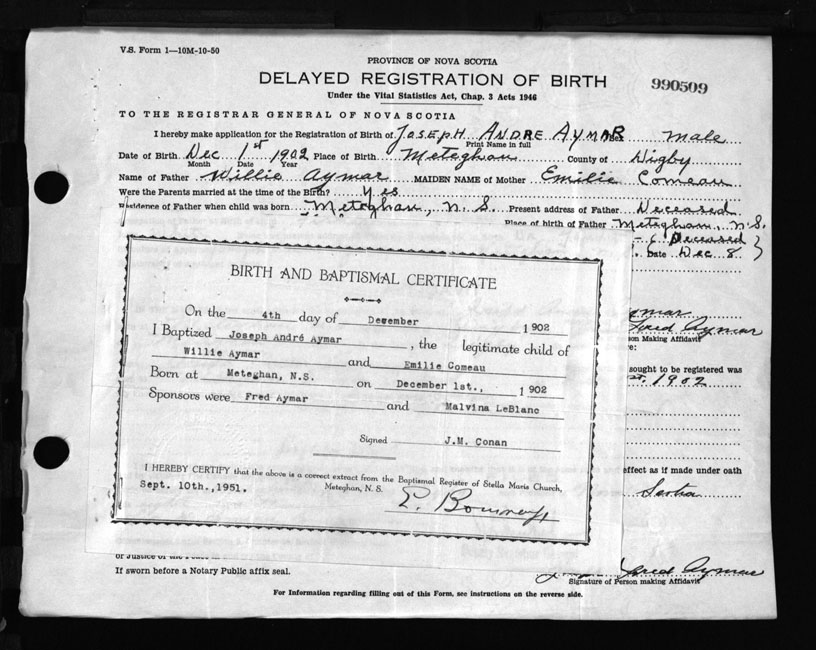 V.S. Form 1—10M-10-50
PROVINCE OF NOVA SCOTIA
DELAYED REGISTRATION OF BIRTH
990509
Under the Vital Statistics Act, Chap. 3 Acts 1946
TO THE REGISTRAR GENERAL OF NOVA SCOTIA
I hereby make application for the Registration of Birth of JOSEPH ANDRE AYMAR Sex male
Print Name in full
Date of Birth Dec 1st 1902 Place of Birth Meteghan County of Digby
Month Date Year
Name of Father Willie Aymar MAIDEN NAME of Mother Emilie Comeau
Were the Parents married at the time of the Birth? Yes
Residence of Father when child was born Meteghan, N.S. Present address of Father Deceased
Place of birth of Father Meteghan, N.S.
Deceased
Date Dec 8
BIRTH AND BAPTISMAL CERTIFICATE
On the 4th day of December 1902
I Baptized Joseph André Aymar, the legitimate child of
Willie Aymar and Emilie Comeau
Born at Meteghan, N.S. on December 1st., 1902
Sponsors were Fred Aymar and Malvina LeBlanc
Signed J.M. Conan
I HEREBY CERTIFY that the above is a correct extract from the Baptismal Register of Stella Maris Church,
Meteghan, N. S.
Sept. 10th., 1951.
Aymar
Fred Aymar
son Making Affidavit
re:
sought to be registered was
1902
effect as if made under oath
Scotia
or Justice of the Peace
If sworn before a Notary Public affix seal.
Fred Aymar
Signature of Person making Affidavit
For Information regarding filling out of this Form, see instructions on the reverse side.